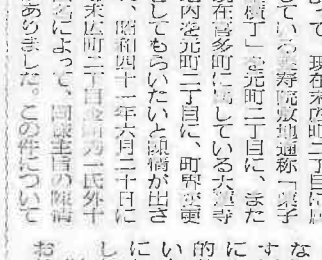 って、現在末広町二丁目に属
している
寿院敷地通称「
子
横丁」を元町二丁目に、また
現在喜多町に属している大
寺
内を元町二丁目に、町界変更
してもらいたいと陳情が出さ
、昭和四十一年六月二十日に
末広町二丁目
一氏外十
名によって、同様主旨の陳情
ありました。この件について
な
す
に
的
い
に
し
お